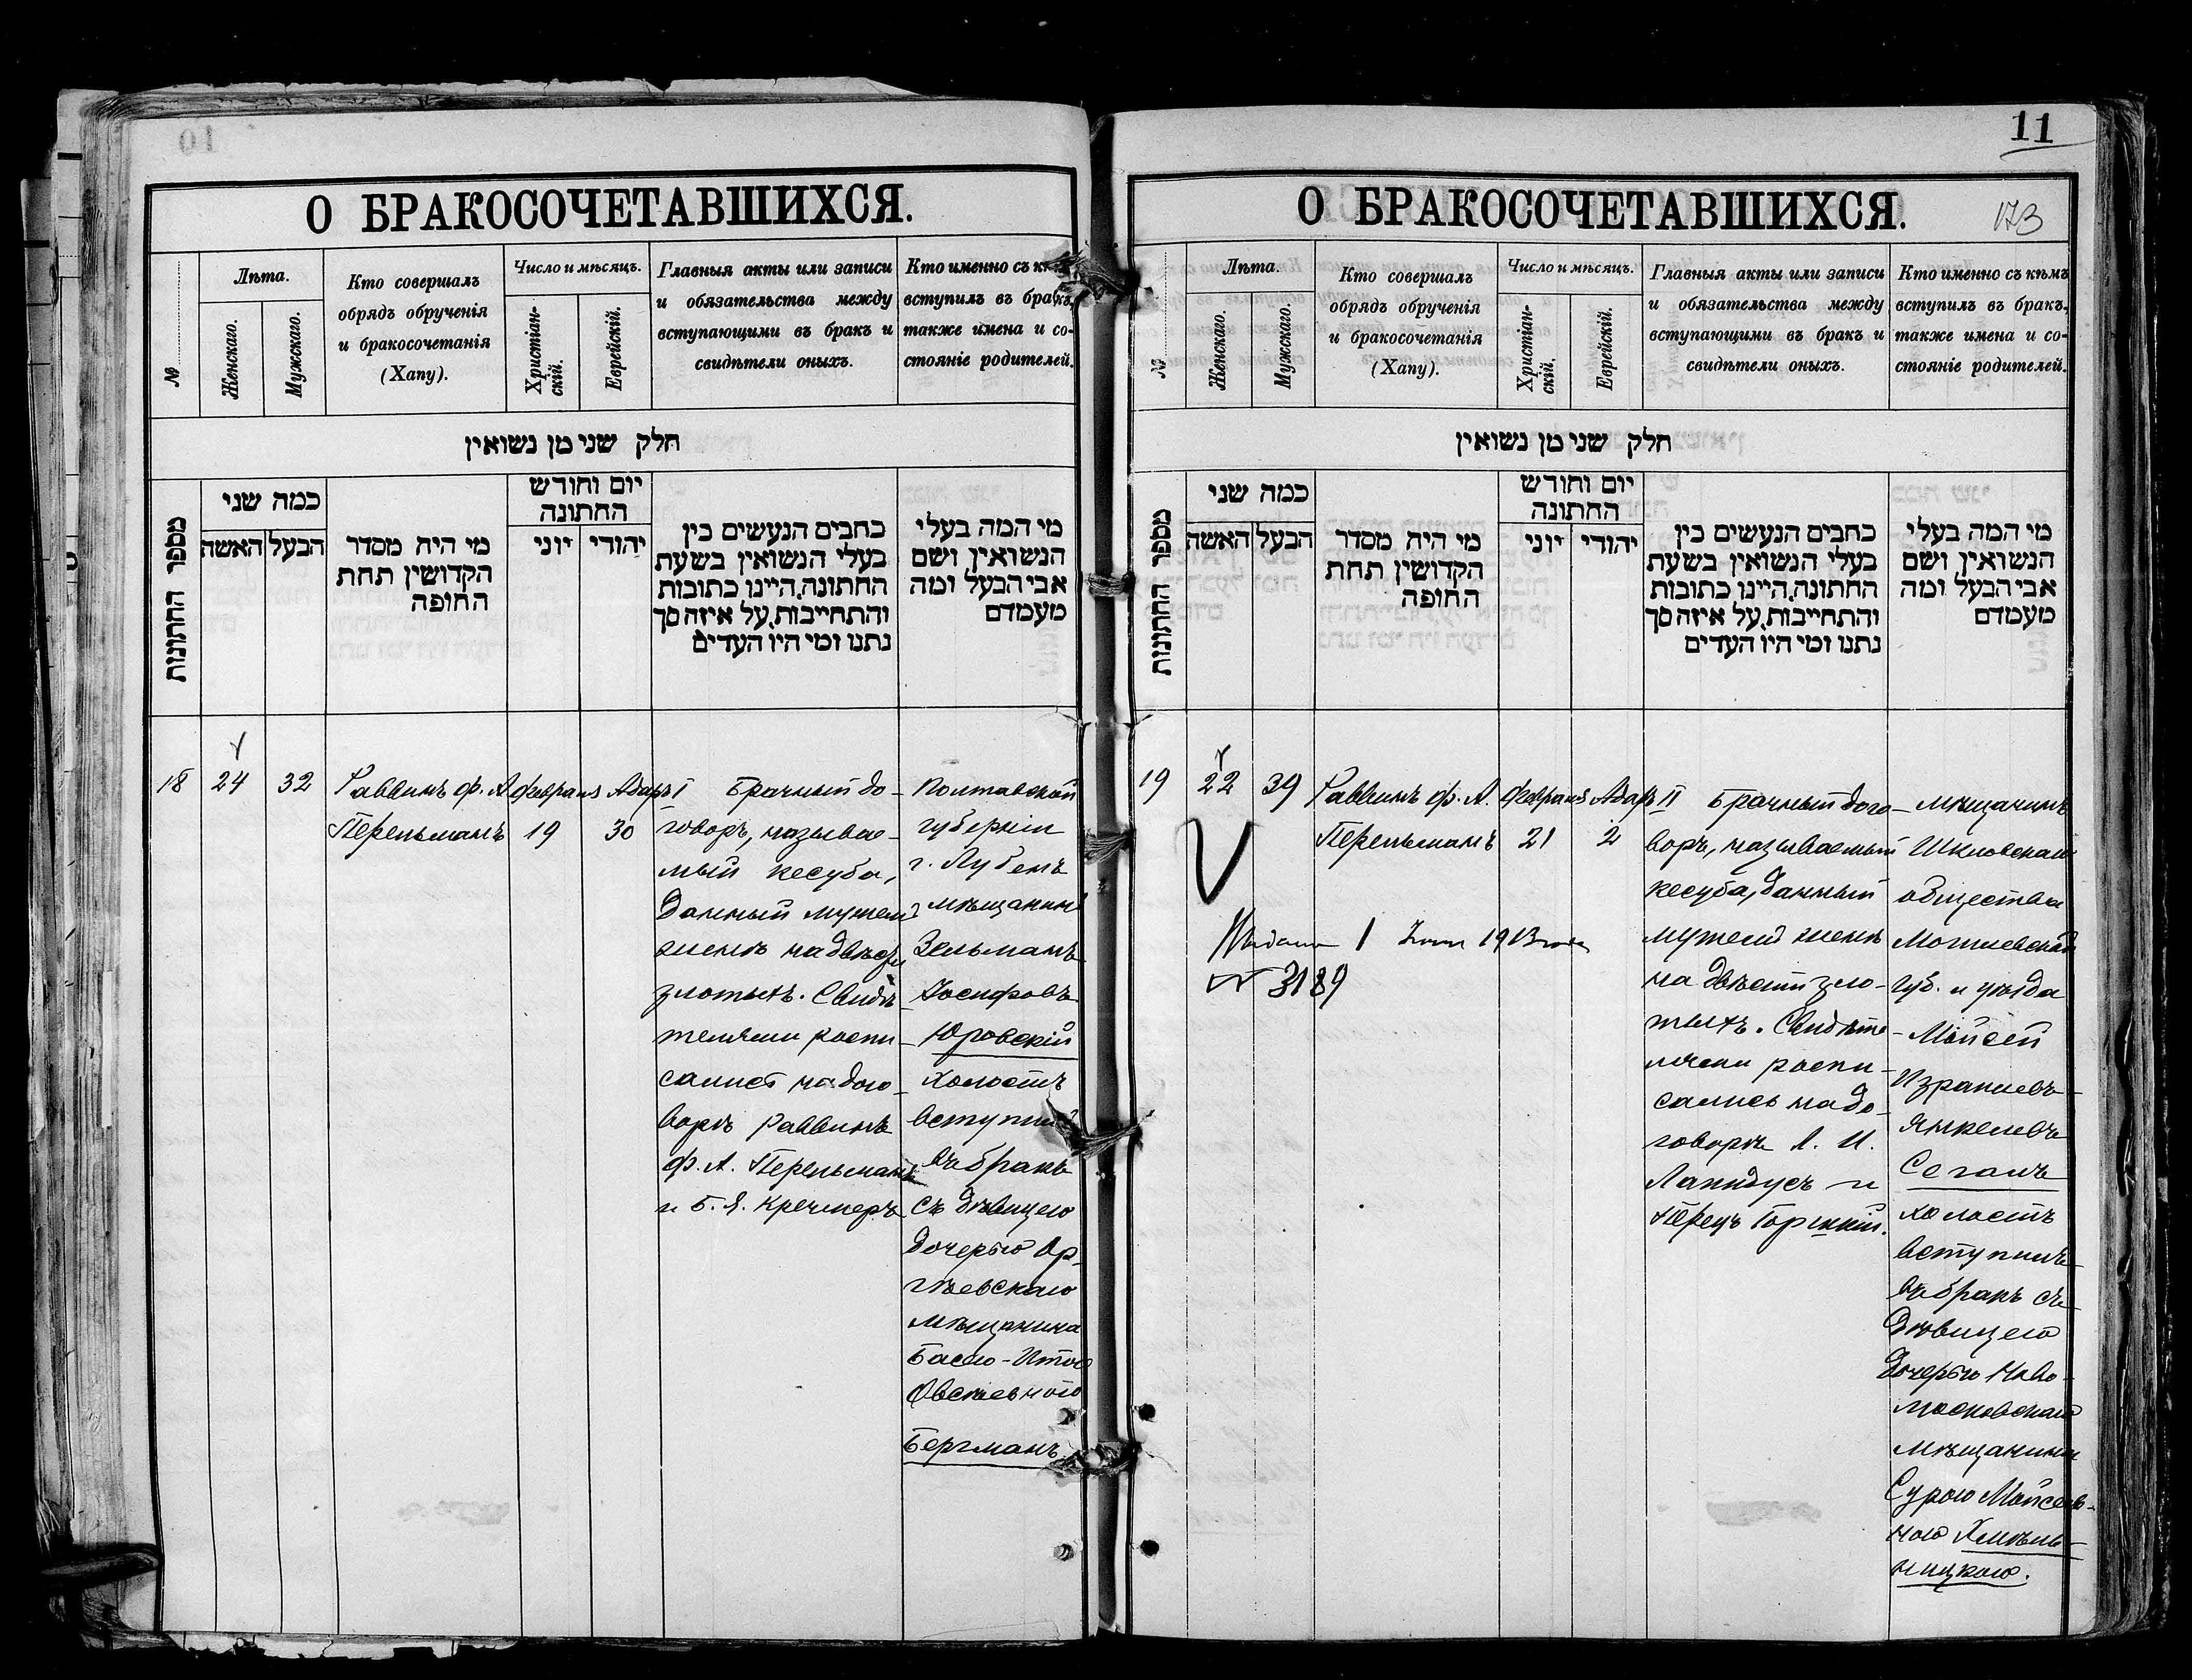 О БРАКОСОЧЕТАВШИХСЯ.
№
Лѣта.
Женскаго.
Мужскаго.
Кто совершалъ
обрядъ обрученія
и бракосочетанія
(Хапу).
Число и мѣсяцъ.
Христіан-
скій.
Еврейскій.
Главныя акты или записи
и обязательства между
вступающими въ бракъ и
свидѣтели оныхъ.
Кто именно съ
вступилъ въ бракъ,
также имена и со-
стояніе родителей.
חלק שני מן נשואין
מספר החתונות
כמה שני
האשה
הבעל
מי היה מסדר
הקדושין תחת
החופה
יום וחודש
החתונה
יוני
יהודי
כתבים הנעשים בין
בעלי הנשואין בשעת
החתונה, היינו כתובות
והתחייבות, על איזה סך
נתנו ומי היו העדים
מי המה בעלי
הנשואין ושם
אבי הבעל ומה
מעמדם
18
24
32
Раввинъ Ф. А.
Перельманъ
февраля
19
Адаръ I
30
Брачный до-
говоръ, называе-
мый кесуба,
данный мужемъ
женѣ на двѣсти
злотыхъ. Свидѣ-
телями распи-
сались на дого-
ворѣ раввинъ
Ф. А. Перельманъ
и Б. Я. Кречмеръ
Полтавской
губерніи
г. Лубенъ
мѣщанинъ
Зельманъ
Іосифовъ
Юровскій
холостъ
вступилъ
въ бракъ
съ дѣвицею
дочерью Ор-
гѣевскаго
мѣщанина
Басею-Итою
Овсѣевною
Бергманъ.
11
О БРАКОСОЧЕТАВШИХСЯ.
173
№
Лѣта.
Женскаго.
Мужскаго.
Кто совершалъ
обрядъ обрученія
и бракосочетанія
(Хапу).
Число и мѣсяцъ.
Христіан-
скій.
Еврейскій.
Главныя акты или записи
и обязательства между
вступающими въ бракъ и
свидѣтели оныхъ.
Кто именно съ кѣмъ
вступилъ въ бракъ,
также имена и со-
стояніе родителей.
חלק שני מן נשואין
מספר החתונות
כמה שני
האשה
הבעל
מי היה מסדר
הקדושין תחת
החופה
יום וחודש
החתונה
יוני
יהודי
כתבים הנעשים בין
בעלי הנשואין בשעת
החתונה, היינו כתובות
והתחייבות, על איזה סך
נתנו ומי היו העדים
מי המה בעלי
הנשואין ושם
אבי הבעל ומה
מעמדם
19
22
39
Раввинъ Ф. А.
Перельманъ
Февраля
21
Адаръ II
2
Выдана 1 1913 года
№ 3189
Брачный дого-
воръ, называемый
кесуба, данный
мужемъ женѣ
на двѣсти зло-
тыхъ. Свидѣте-
лями распи-
сались на до-
говорѣ Л. И.
Лапидусъ и
Перецъ Горскій.
мѣщанинъ
Шкловскаго
общества
Могилевской
губ. и уѣзда
Мойсей
Израилевъ-
Янкелевъ
Сегалъ
холостъ
вступилъ
въ бракъ съ
дѣвицею
дочерью Ново-
московскаго
мѣщанина
Сурою Мойсеев-
ною Хмѣль-
ницкою.